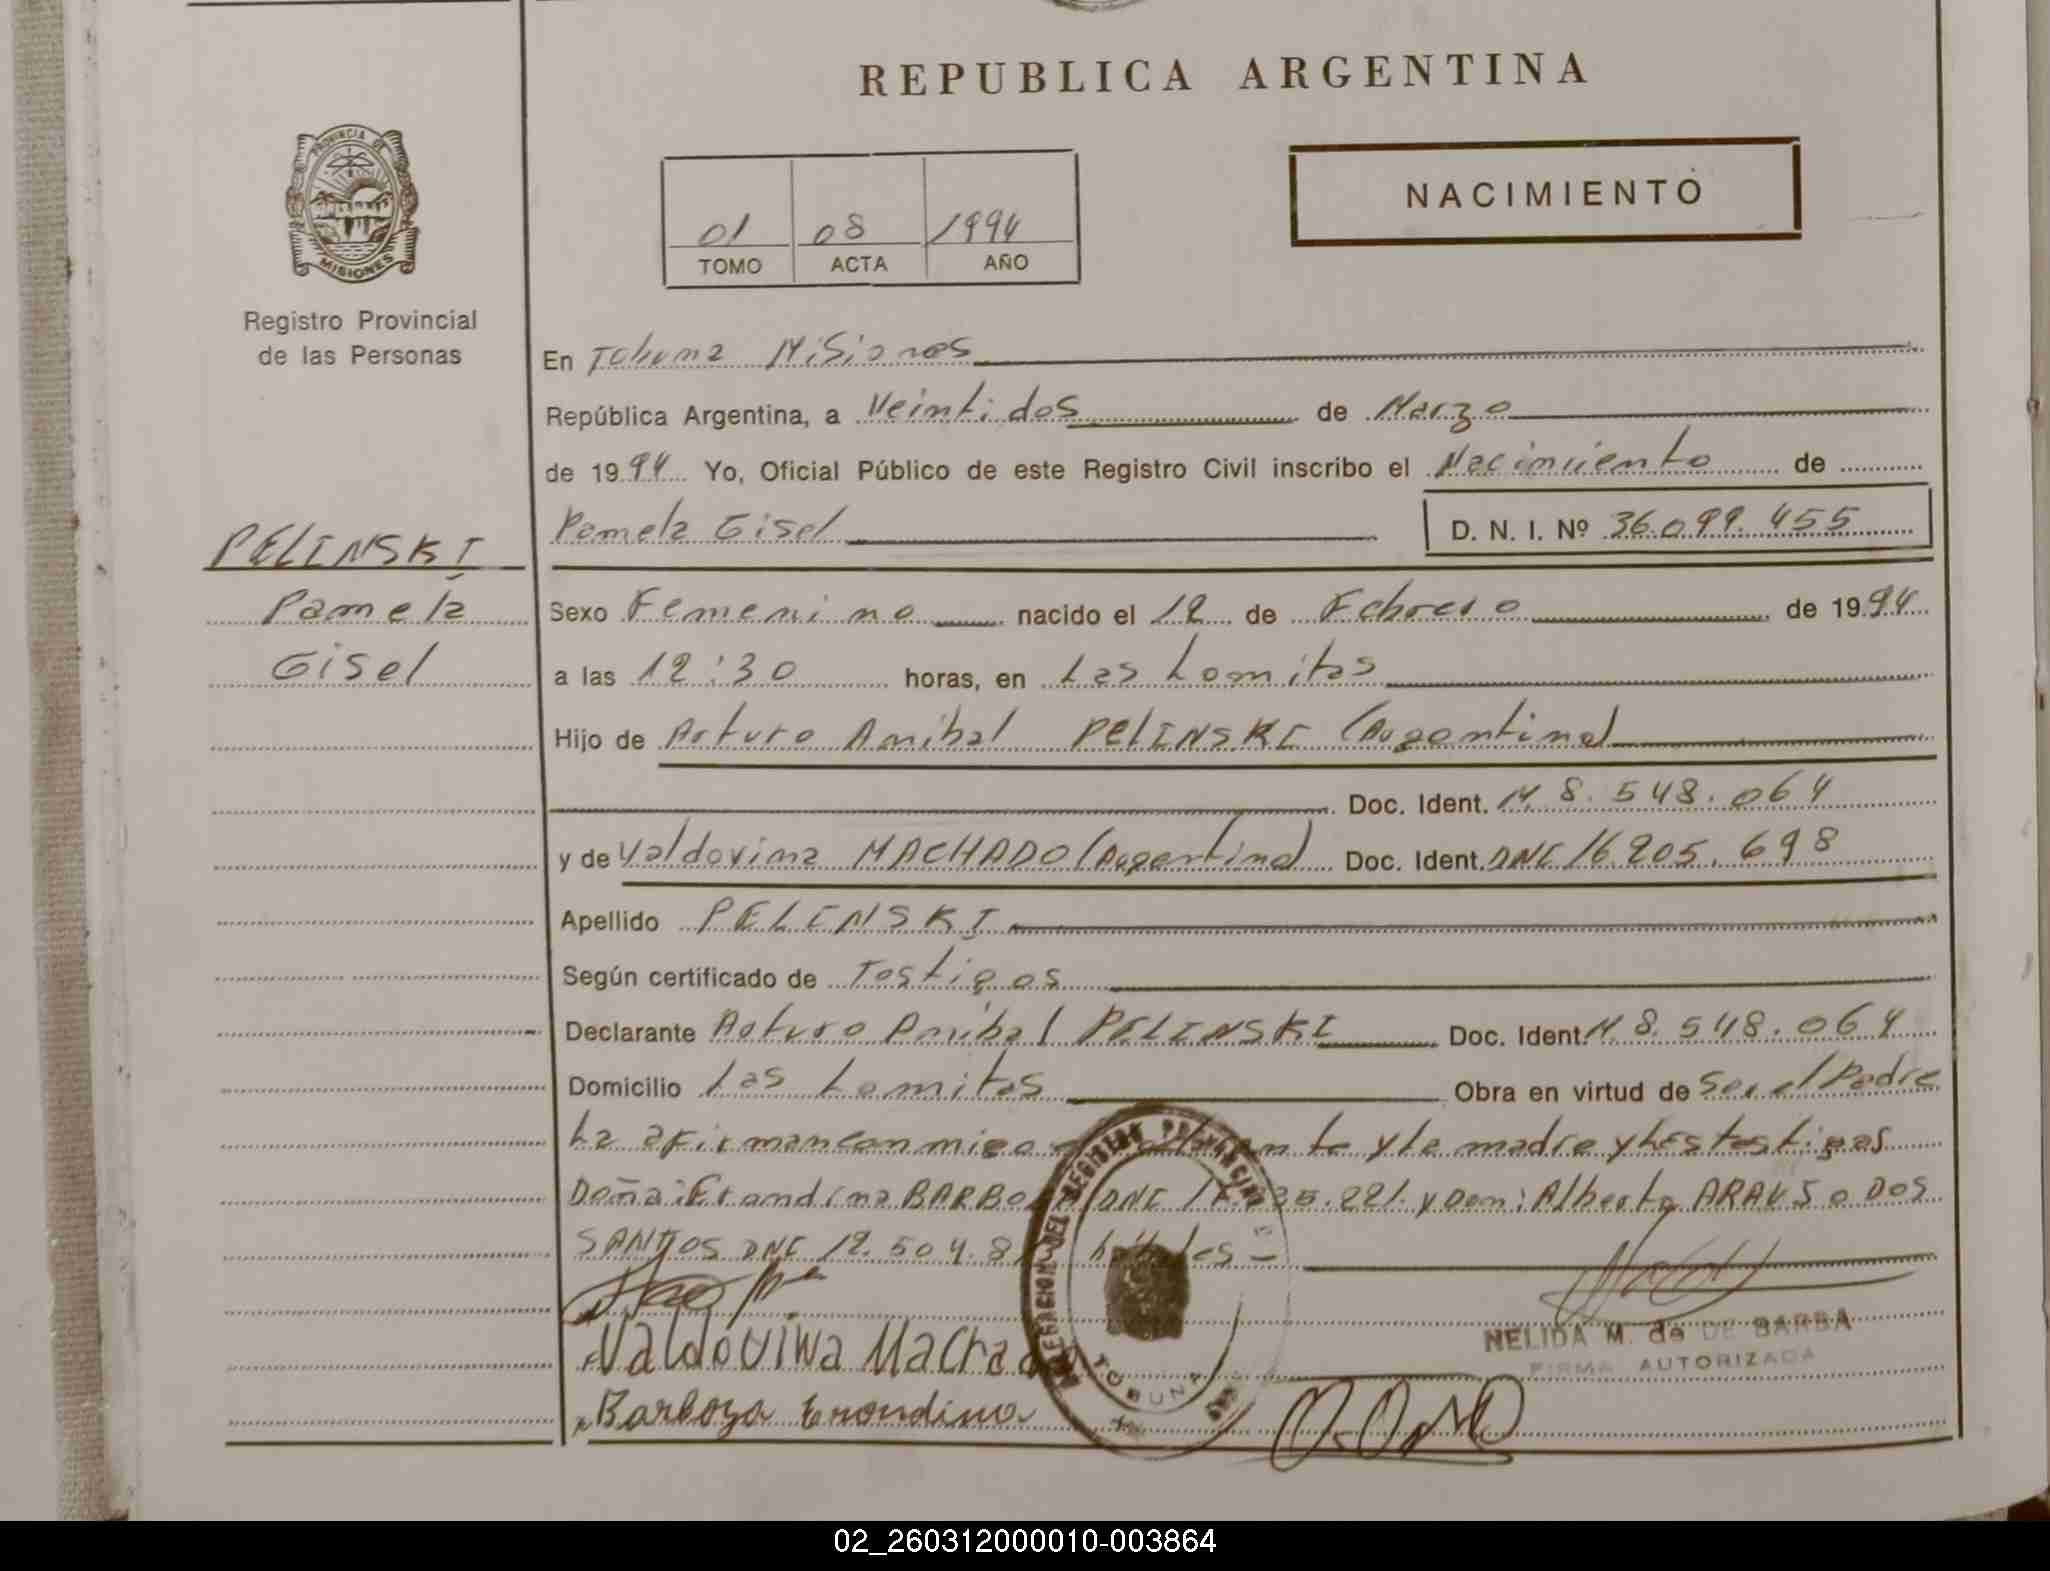 REPUBLICA ARGENTINA
PROVINCIA DE MISIONES
Registro Provincial
de las Personas
01 08 1994
TOMO ACTA AÑO
NACIMIENTO
En Tobuna Misiones
República Argentina, a Veintidos de Marzo
de 1994 Yo, Oficial Público de este Registro Civil inscribo el Nacimiento de
Pamela Gisel D. N. I. Nº 36.099.455
PELINSKI
Pamela
Gisel
Sexo Femenino nacido el 12 de Febrero de 1994
a las 12:30 horas, en Las Lomitas
Hijo de Arturo Anibal PELINSKI (Argentina)
Doc. Ident. M. 8.548.064
y de Valdovina MACHADO (Argentina) Doc. Ident. DNI 16.205.698
Apellido PELINSKI
Según certificado de Testigos
Declarante Arturo Anibal PELINSKI Doc. Ident. M. 8.548.064
Domicilio Las Lomitas Obra en virtud de Ser el Padre
La afirman conmigo y la madre y los testigos
Doña: Erondina DNI y Don: Alberto ARAUJO DOS
SANTOS DNI 12.504.8
Valdovina Machado
Barboza Erondina
NELIDA M. de DE BARBA
FIRMA AUTORIZADA
DELEGACION DEL REGISTRO PROVINCIAL
TOBUNA
02_260312000010-003864